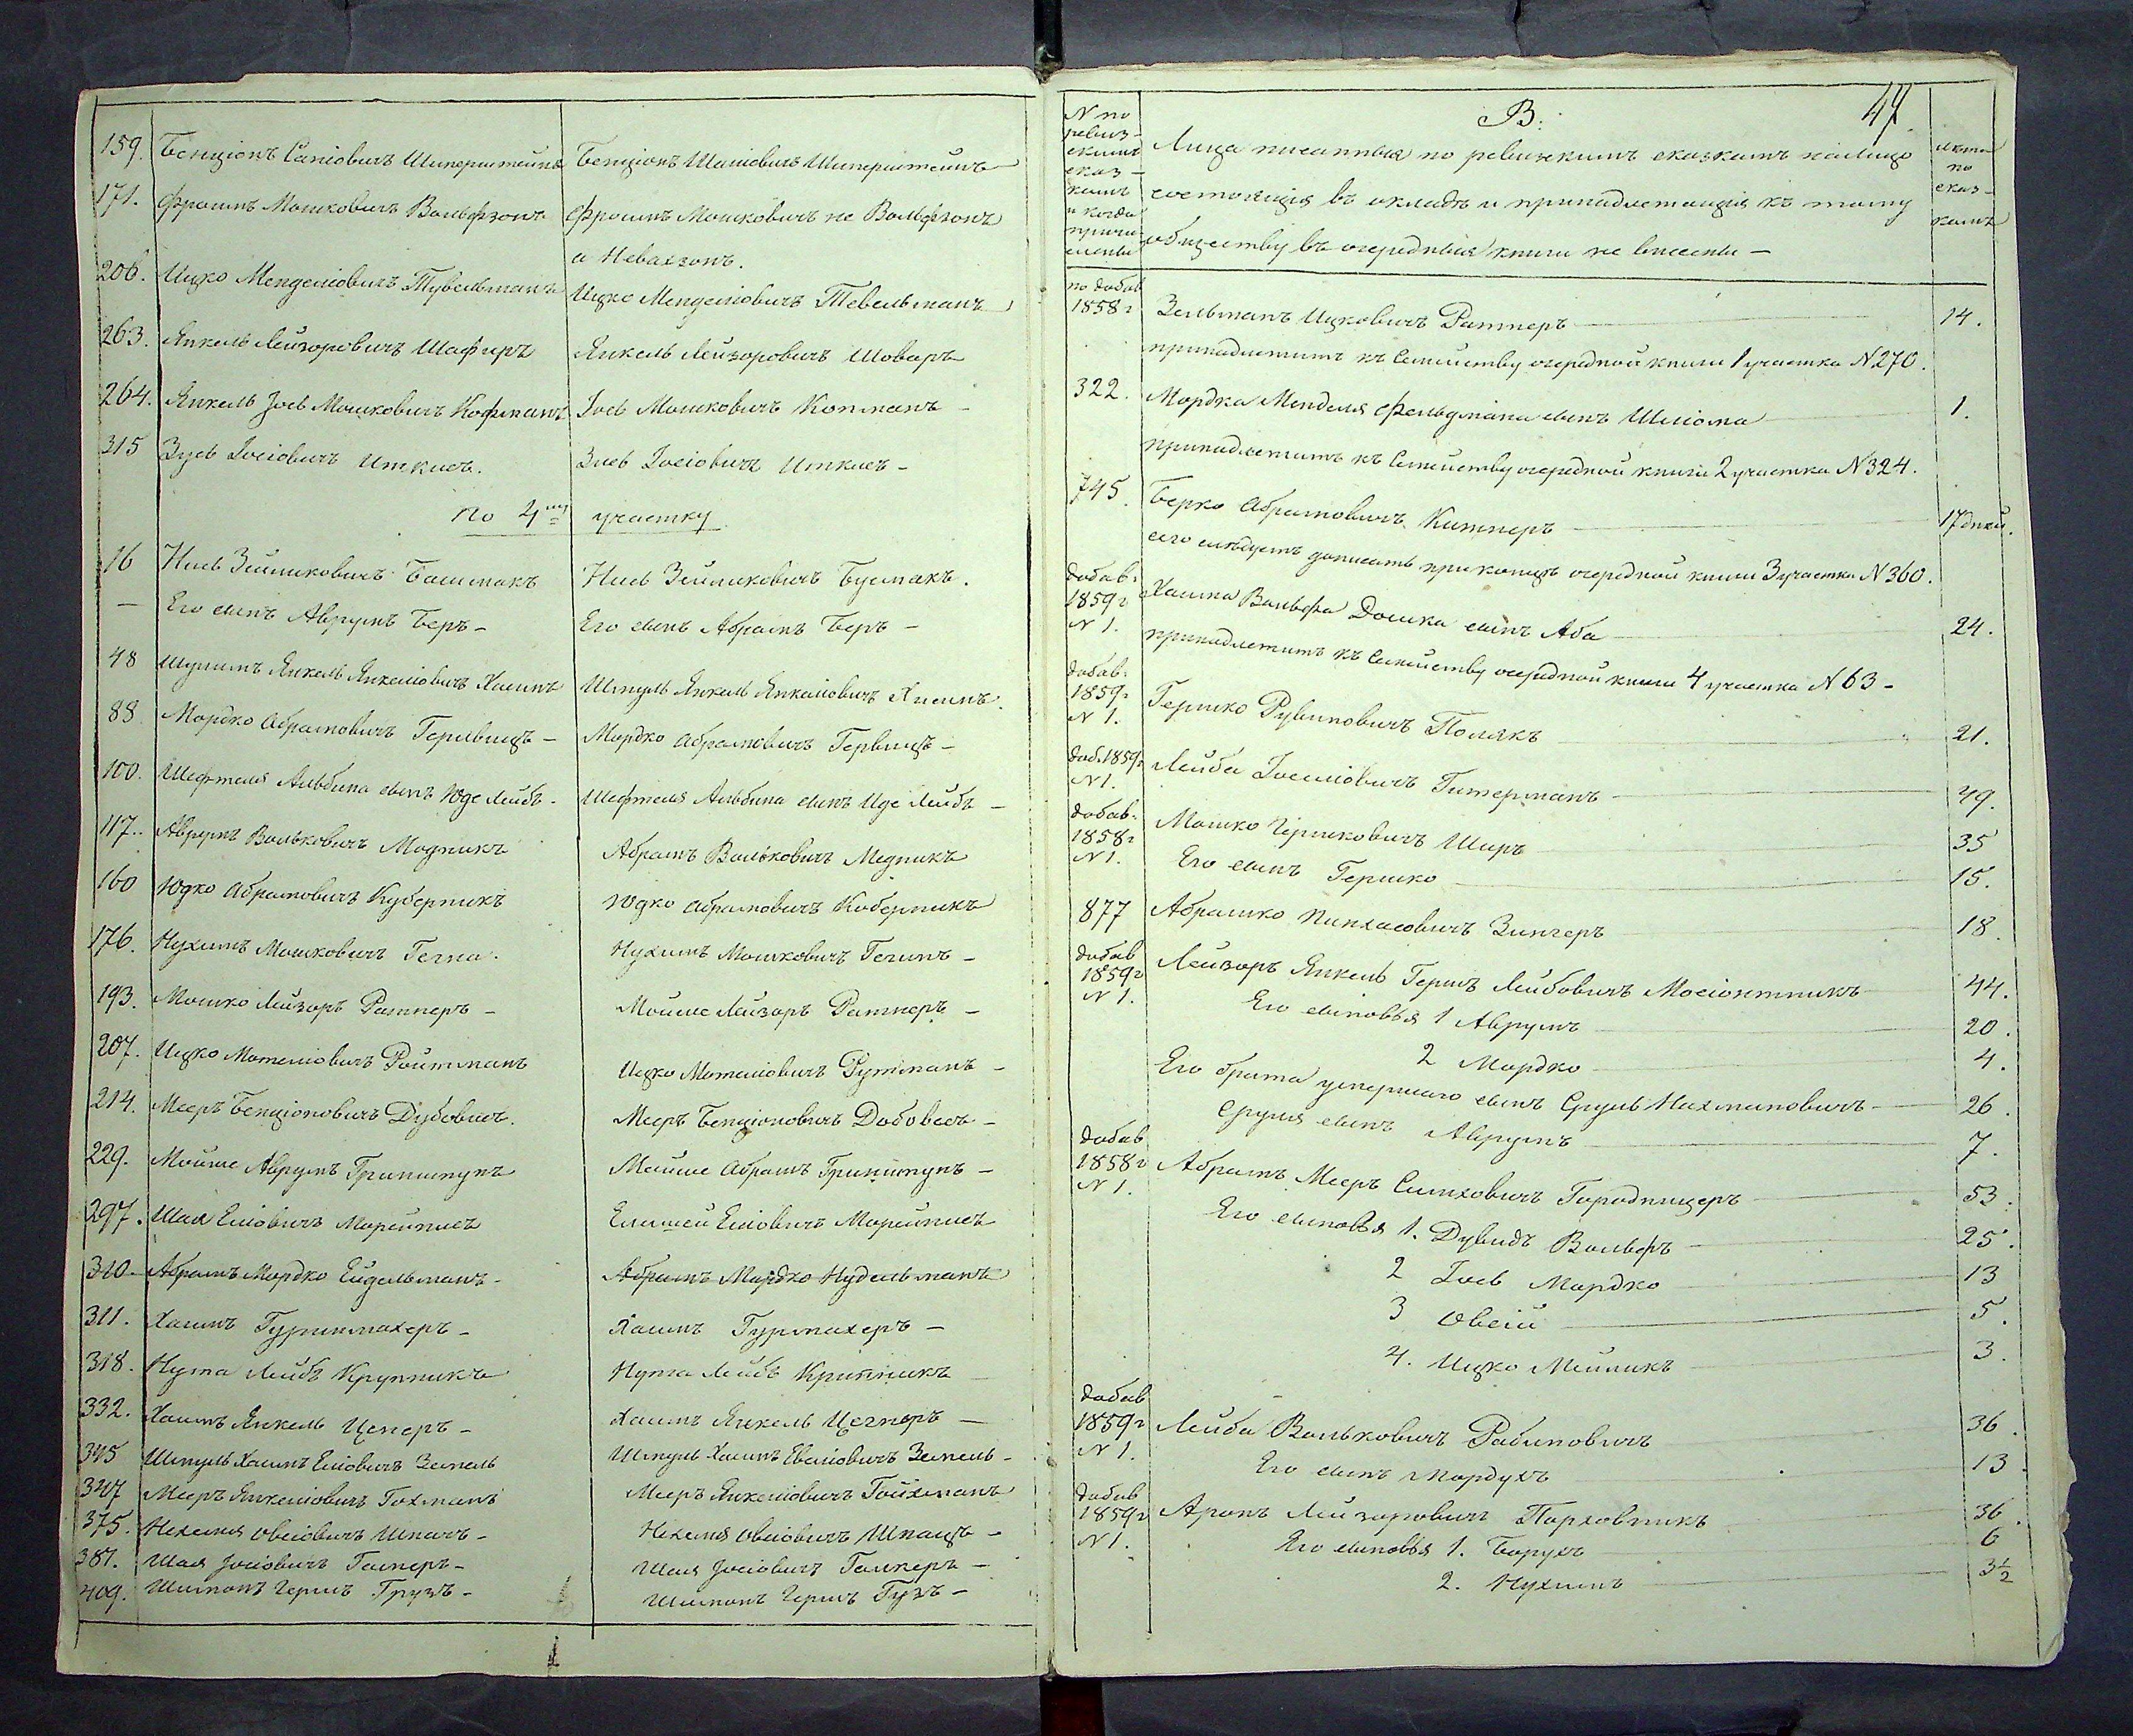 159. Бенціонъ Сапіовичъ Шперштейнъ Бенціонъ Шапіовичъ Шперштейнъ
171. Фроимъ Мошковичъ Вольфзонъ Фроимъ Мошковичъ не Вольфзонъ
а Невахзонъ.
206. Ицко Менделіовичъ Тубельманъ Ицко Менделіовичъ Тевельманъ
263. Янкель Лейзоровичъ Шафиръ Янкель Лейзоровичъ Шоваръ
264. Янкель Іосъ Мошковичъ Кофманъ Іосъ Мошковичъ Копманъ -
315 Зусь Іосіовичъ Иткисъ. Зись Іосіовичъ Иткисъ -
по 4му участку
16 Нисъ Зейликовичъ Башмакъ Нисъ Зейликовичъ Бусмакъ.
— Его сынъ Аврумъ Беръ - Его сынъ Абрамъ Беръ -
48 Янкель Янкеліовичъ Хаимъ Шмуль Янкель Янкеліовичъ
88. Мордко Абрамовичъ Гершвицъ - Мордко Абрамовичъ Гервицъ -
100. Шефтеля Альбина сынъ Юде Лейбъ - Шефтеля Альбина сынъ Иде Лейбъ -
117. Аврумъ Вольковичъ Модникъ Абрамъ Вольковичъ Медникъ
160 Юдко Абрамовичъ Куберникъ Юдко Абрамовичъ Коберникъ
176. Нухимъ Мошковичъ Гечна. Нухимъ Мошковичъ Гечинъ -
193. Мошко Лейзоръ Ратнеръ - Мойше Лейзоръ Ратнеръ -
207. Ицко Мотеліовичъ Ройтманъ Ицко Мотеліовичъ Рутманъ -
214. Мееръ Бенціоновичъ Дубовисъ. Мееръ Бенціоновичъ Добовесъ -
229. Мойше Аврумъ Гринштунъ Мойше Абрамъ Гринштунъ -
297. Шая Еліовичъ Марейнисъ Елишей Еліовичъ Марейнисъ
310 Абрамъ Мордко Ейдельманъ - Абрамъ Мордко Нудельманъ
311. Хаимъ Гуринмахеръ - Хаимъ Гурмахеръ -
318. Нута Лейбъ Крупникъ Нута Лейбъ Крипникъ
332. Хаимъ Янкель Цеперъ - Хаимъ Янкель Цегнеръ —
345 Шмуль Хаимъ Еліовичъ Земель Шмуль Хаимъ Земель -
347 Мееръ Янкеліовичъ Гохманъ Мееръ Янкеліовичъ Гойхманъ
375. Нехемя Овсіовичъ Шпачъ - Нехемя Овсіовичъ Шпацъ -
387. Шая Іосіовичъ Галперъ - Шая Іосіовичъ Галкеръ -
409. Шимонъ Гершъ Грузъ - Шимонъ Гершъ Гузъ -
47
В.
N по ревизскимъ сказкамъ и когда причислены
Лица писанныя по ревизскимъ сказкамъ налицо
состоящія въ окладѣ и принадлежащія къ тому
обществу въ очередныя книги не внесены -
лѣта по сказкамъ
по добав 1858 г Зельманъ Ицковичъ Ратнеръ 14.
принадлежитъ къ семейству очередной книги 1 участка N 270.
322. Мордка Менделя Фельдмана сынъ Шліома 1.
принадлежитъ къ семейству очередной книги 2 участка N 324.
745. Берко Абрамовичъ Китнеръ 17 дней.
его слѣдуетъ дописать при концѣ очередной книги 3 участка N 360.
добав. 1859 г N 1. Хаима Вольфа Дошка сынъ Аба 24.
принадлежитъ къ семейству очередной книги 4 участка N 63 -
добав. 1859 г N 1. Гершко Рувиновичъ Полякъ 21.
доб. 1859 г N 1. Лейба Іосиліовичъ Гитерманъ 49.
добав. 1858 г N 1. Мошко Гершковичъ Ширъ 35
Его сынъ Гершко 15.
877 Абрашко Пинхасовичъ Зингеръ 18.
добав 1859 г N 1. Лейзоръ Янкель Гершъ Лейбовичъ 44.
Его сыновья 1 Аврумъ 20.
2 Мордко 4.
Его брата умершаго сынъ Сруль Нахмановичъ 26.
Сруля сынъ Аврумъ 7.
добав 1858 г N 1. Абрамъ Мееръ Симховичъ Городницеръ 53.
Его сыновья 1. Дувидъ Вольфъ 25.
2 Іосъ Мордко 13
3 Овсій 5.
4. Ицко Мейликъ 3.
добав 1859 г N 1. Лейба Вольковичъ Рабиновичъ 36.
Его сынъ Мордухъ 13
добав 1859 г N 1. Аронъ Лейзоровичъ Порховникъ 36.
Его сыновья 1. Борухъ 6
2. Нухимъ 3½